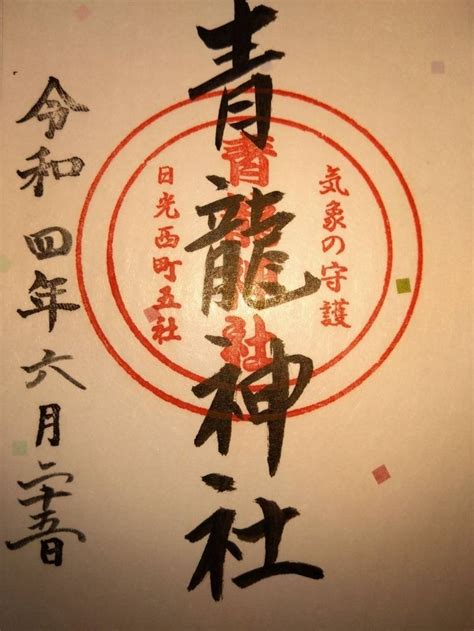 気象の守護
青龍神社
青龍神社
日光西町五社
令和四年六月二十五日